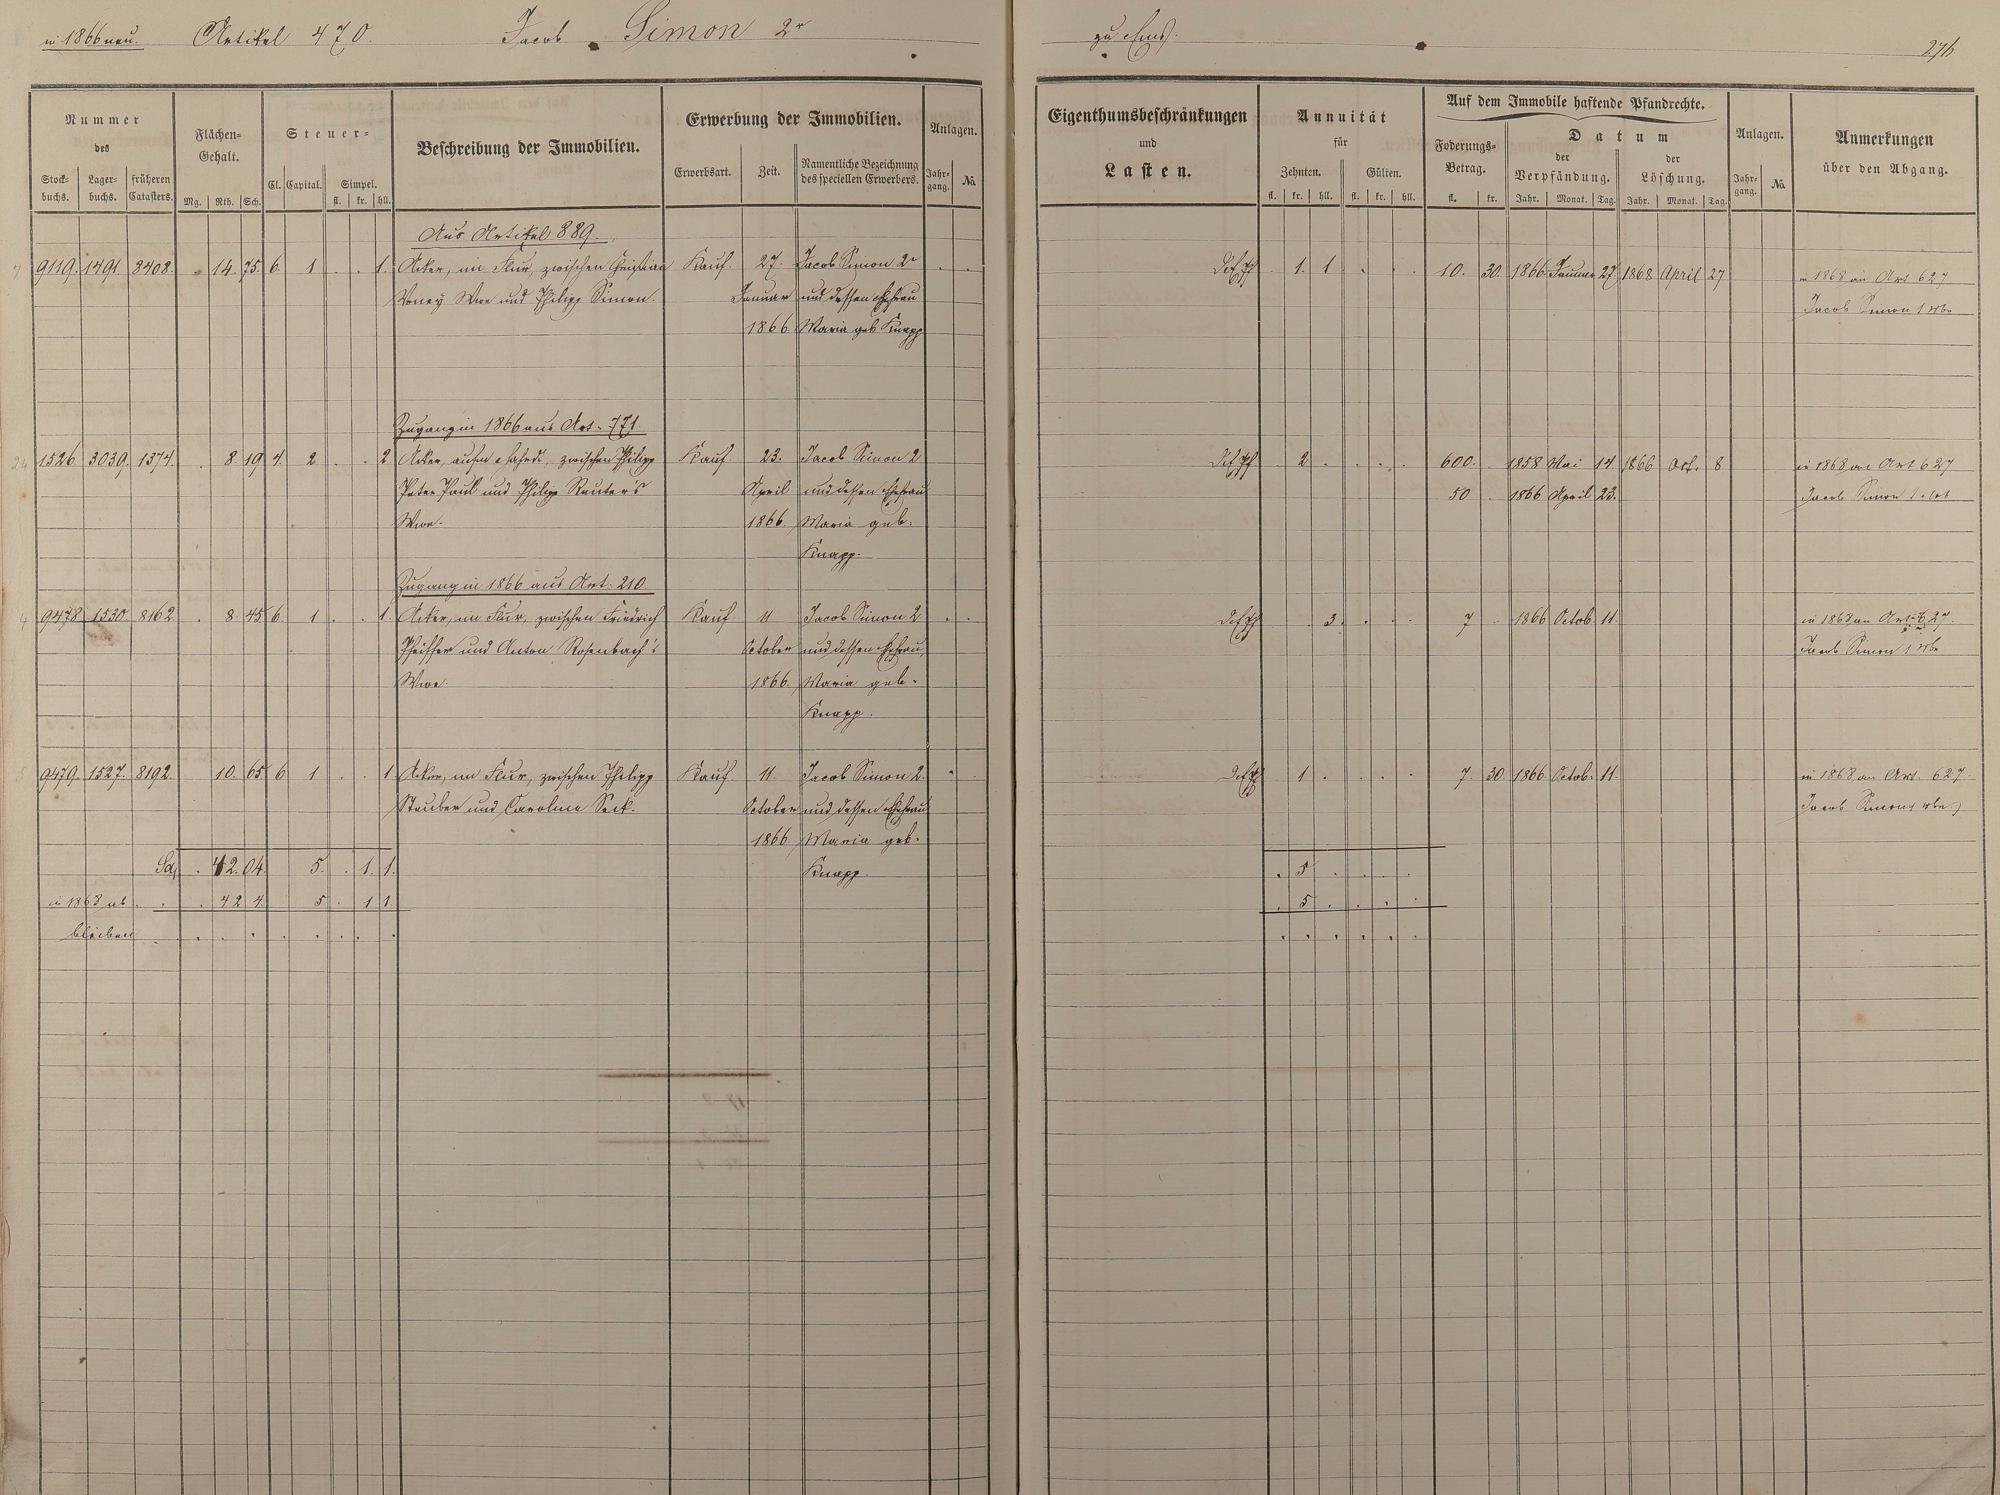 in 1866 neu. Artikel 470. Jacob Simon 2r
zu Ems.
276
Nummer
des
Stock-
buchs.
Lager-
buchs.
früheren
Catasters.
Flächen-
Gehalt.
Mg. Rth. Sch.
Steuer-
Cl. Capital. Simpel.
fl. kr. hll.
Beschreibung der Immobilien.
Erwerbung der Immobilien.
Erwerbsart. Zeit.
Namentliche Bezeichnung
des speciellen Erwerbers.
Anlagen.
Jahr-
gang. No.
Eigenthumsbeschränkungen
und
Lasten.
Annuität
für
Zehnten. Gülten.
fl. kr. hll. fl. kr. hll.
Auf dem Immobile haftende Pfandrechte.
Foderungs-
Betrag.
fl. kr.
Datum
der
Verpfändung.
Jahr. Monat. Tag.
der
Löschung.
Jahr. Monat. Tag.
Anlagen.
Jahr-
gang. No.
Anmerkungen
über den Abgang.
Aus Artikel 889.
9119. 1491. 8408. . 14. 75. 6. 1 . . 1. Acker, im Flur, zwischen Christian Kauf. 27. Jacob Simon 2r . . 1. 1 . . . 10. 30. 1866. Januar 27. 1868 April 27 in 1868 an Art 627
Wwe und Philipp Simon. Januar und dessen Ehefrau Jacob Simon 1
1866. Maria geb. Knapp
Zugang in 1866 aus Art. 771.
1526 3039. 1374. . 8. 19 4. 2 . . 2 Acker, zwischen Philipp Kauf. 23. Jacob Simon 2 . 2 . . . . 600. . 1858 Mai 14 1866 Oct. 8 in 1868 an Art 627
Peter Paul und Philipp Reuter's April und dessen Ehefrau 50 . 1866 April 23. Jacob Simon 1
Wwe. 1866. Maria geb.
Knapp.
Zugang in 1866 aus Art. 210.
9478 1530. 8162 . 8. 45 6. 1 . . 1. Acker, im Flur, zwischen Friedrich Kauf. 11 Jacob Simon 2 . . . . 3. . . . 7 . 1866 Octob. 11. in 1868 an Art. 627.
Pfeiffer und Anton Rosenbach's October und dessen Ehefrau, Jacob Simon 1
Wwe. 1866. Maria geb.
Knapp.
9479. 1527. 8192. 10. 65 6 1 . . 1 Acker, im Flur, zwischen Philipp Kauf. 11. Jacob Simon 2. . . 1 . . . . 7. 30. 1866 Octob. 11. in 1868 an Art. 627
Stauber und Caroline Seck. October und dessen Ehefrau Jacob Simon 1
1866. Maria geb.
Sa. . 42. 04. 5. . 1. 1. Knapp. . 5 . . . .
in 1868 ab . . . 42 4. 5 . 1 1 . 5 . . . .
bleiben . . . . . . . . . . . . . . .